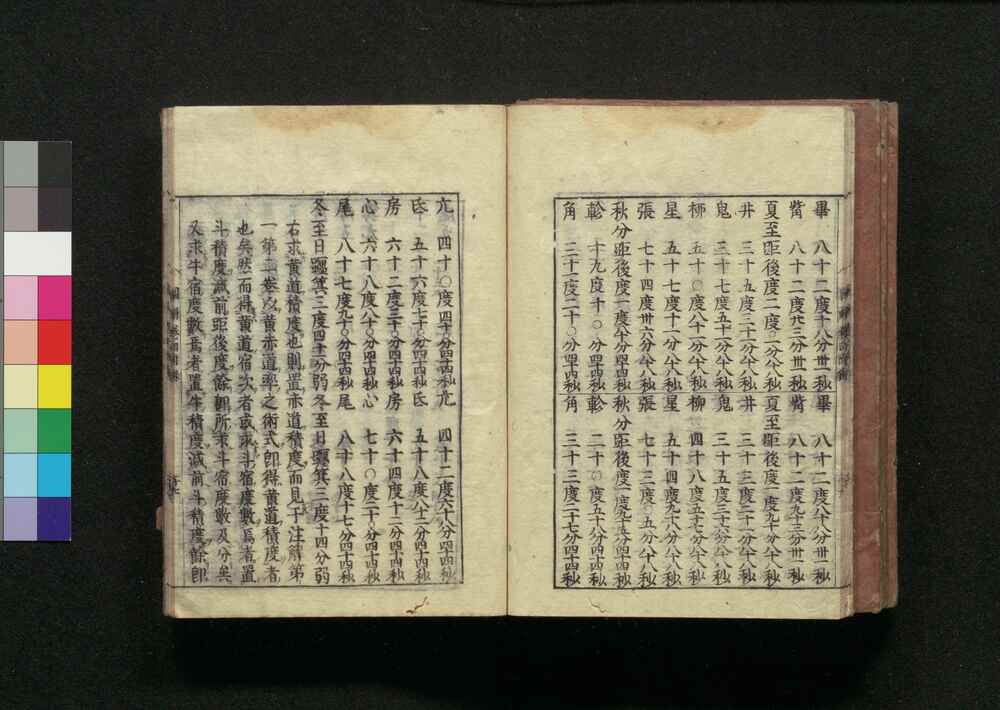 畢 八十二度十八分卅一秒畢 八十二度八十八分卅一秒
觜 八十二度卅三分卅一秒觜 八十二度九十三分卅一秒
夏至距後度二度二一分八十八秒夏至距後度一度九十一分八十八秒
井 三十五度二十一分八十八秒井 三十三度二十一分八十八秒
鬼 三十七度五十一分八十八秒鬼 三十五度三十六分八十八秒
柳 五十〇度八十二分八十八秒柳 四十八度五十七分八十八秒
星 五十七度十一分八十八秒星 五十四度九十八分八十八秒
張 七十四度卅六分八十八秒張 七十三度〇五分八十八秒
秋分距後度一度八十分四十四秒秋分距後度一度九十六分四十四秒
軫 十九度十〇分四十四秒軫 二十〇度五十六分四十四秒
角 三十一度二十〇分四十四秒角 三十三度二十七分四十四秒
亢 四十〇度四十分四十四秒亢 四十二度六十八分四十四秒
氐 五十六度七十分四十四秒氐 五十八度八十二分四十四秒
房 六十二度三十分四十四秒房 六十四度十二分四十四秒
心 六十八度八十分四十四秒心 七十〇度二十分四十四秒
尾 八十七度九十分四十四秒尾 八十八度十七分四十四秒
冬至日躔箕三度四十分弱冬至日躔箕三度十四分弱
右求黄道積度也則置赤道積度而見于注解第
一第二卷以黄赤道率之術式卽得黄道積度者
也矣然而得黄道宿次者或求斗宿度數爲者置
斗積度減前距後度餘卽所求斗宿度數及分矣
又求牛宿度數爲者置牛積度減前斗積度餘卽